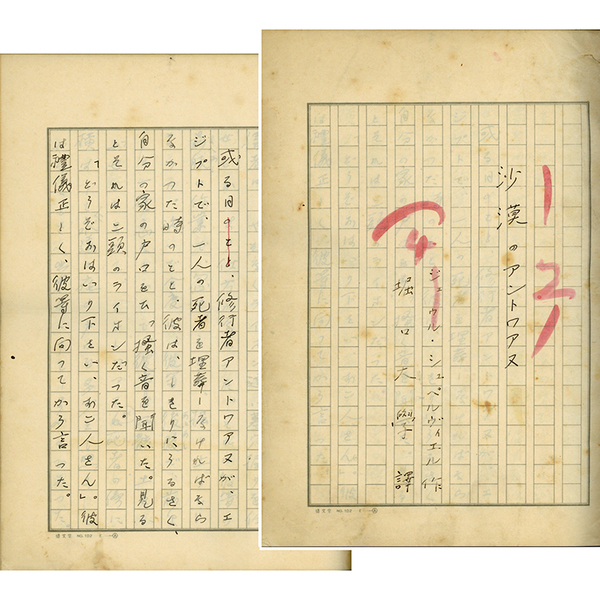 沙漠のアントワアヌ
ジュウル・シュペルヴィエル作
堀口大學譯
或る日のこと、修行者アントワアヌが、エ
ジプトで、一人の死者を埋葬しなければなら
なかつた時のこと、彼は、しきりにうるさく、
自分の家の戸口をひつ掻く音を聞いた。見る
とそれは二頭のライオンだつた。
「どうぞおはいり下さい、お二人さん」。彼
は禮儀正しく、彼等に向つてから言つた。